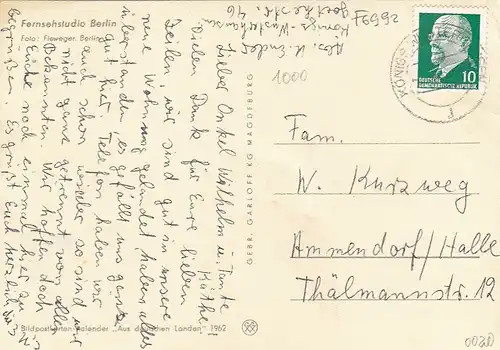 Fernsehstudio Berlin
Foto: Fieweger, Berlin
F6992
Abs. K. Ender
Königs Wusterhausen
Goethestr. 46
1000
Lieber Onkel Wilhelm u. Tante
Käthe!
Vielen Dank für Eure lieben
Zeilen, wir sind gut in unsere
neue Wohnung gelandet, haben alles
überstanden, es gefällt uns ganz
gut hier. Telefon haben wir
auch schon wieder so sind wir
nicht ganz getrennt von allen
Bekannten. Wir hoffen doch
Euch noch einmal hier zu
begrüßen. Es grüßt Euch herzlich
Bildpostkarten-Kalender „Aus deutschen Landen" 1962
GEBR. GARLOFF KG MAGDEBURG
DEUTSCHE
DEMOKRATISCHE REPUBLIK
10
KÖNIGS
Fam.
W. Kurzweg
Ammendorf/Halle
Thälmannstr. 12